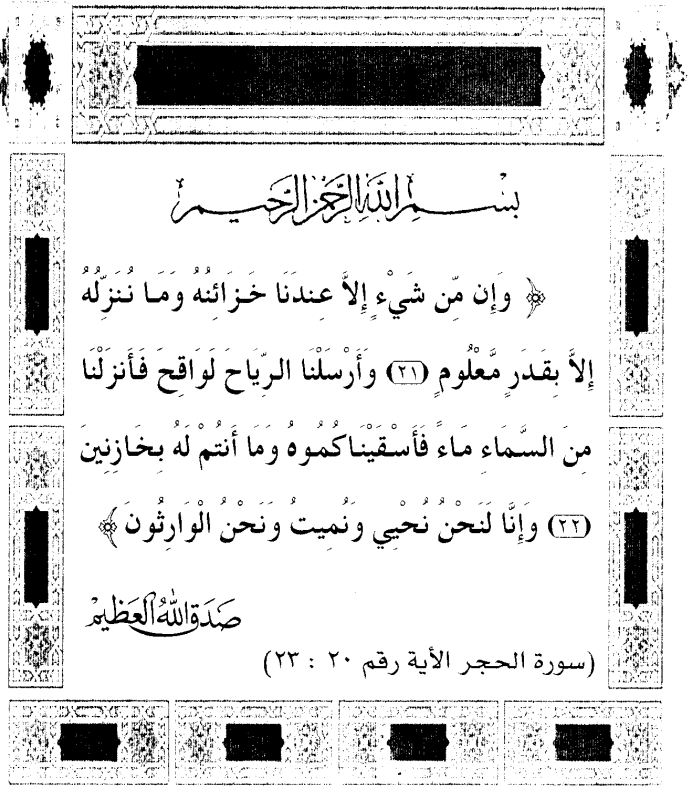 بِسْمِ اللَّهِ الرَّحْمَٰنِ الرَّحِيمِ
﴿ وَإِن مِّن شَيْءٍ إِلاَّ عِندَنَا خَزَائِنُهُ وَمَا نُنَزِّلُهُ
إِلاَّ بِقَدَرٍ مَّعْلُومٍ (٢١) وَأَرْسَلْنَا الرِّيَاحَ لَوَاقِحَ فَأَنزَلْنَا
مِنَ السَّمَاءِ مَاءً فَأَسْقَيْنَاكُمُوهُ وَمَا أَنتُمْ لَهُ بِخَازِنِينَ
(٢٢) وَإِنَّا لَنَحْنُ نُحْيِي وَنُمِيتُ وَنَحْنُ الْوَارِثُونَ ﴾
صَدَقَ اللَّهُ الْعَظِيمُ
(سورة الحجر الأية رقم ٢٠ : ٢٣)